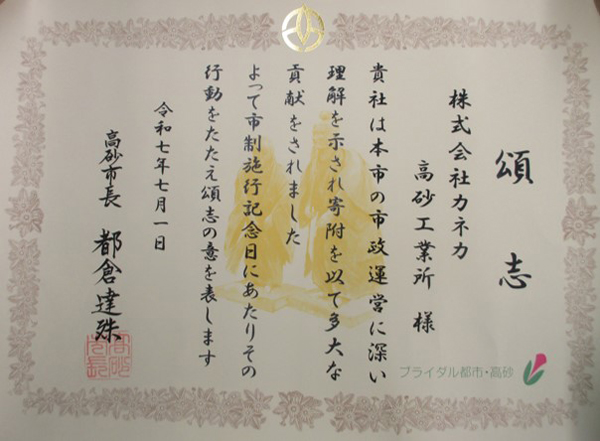 頌志
株式会社カネカ
高砂工業所 様
貴社は本市の市政運営に深い
理解を示され寄附を以て多大な
貢献をされました
よって市制施行記念日にあたりその
行動をたたえ頌志の意を表します
令和七年七月一日
高砂市長 都倉達殊
ブライダル都市・高砂